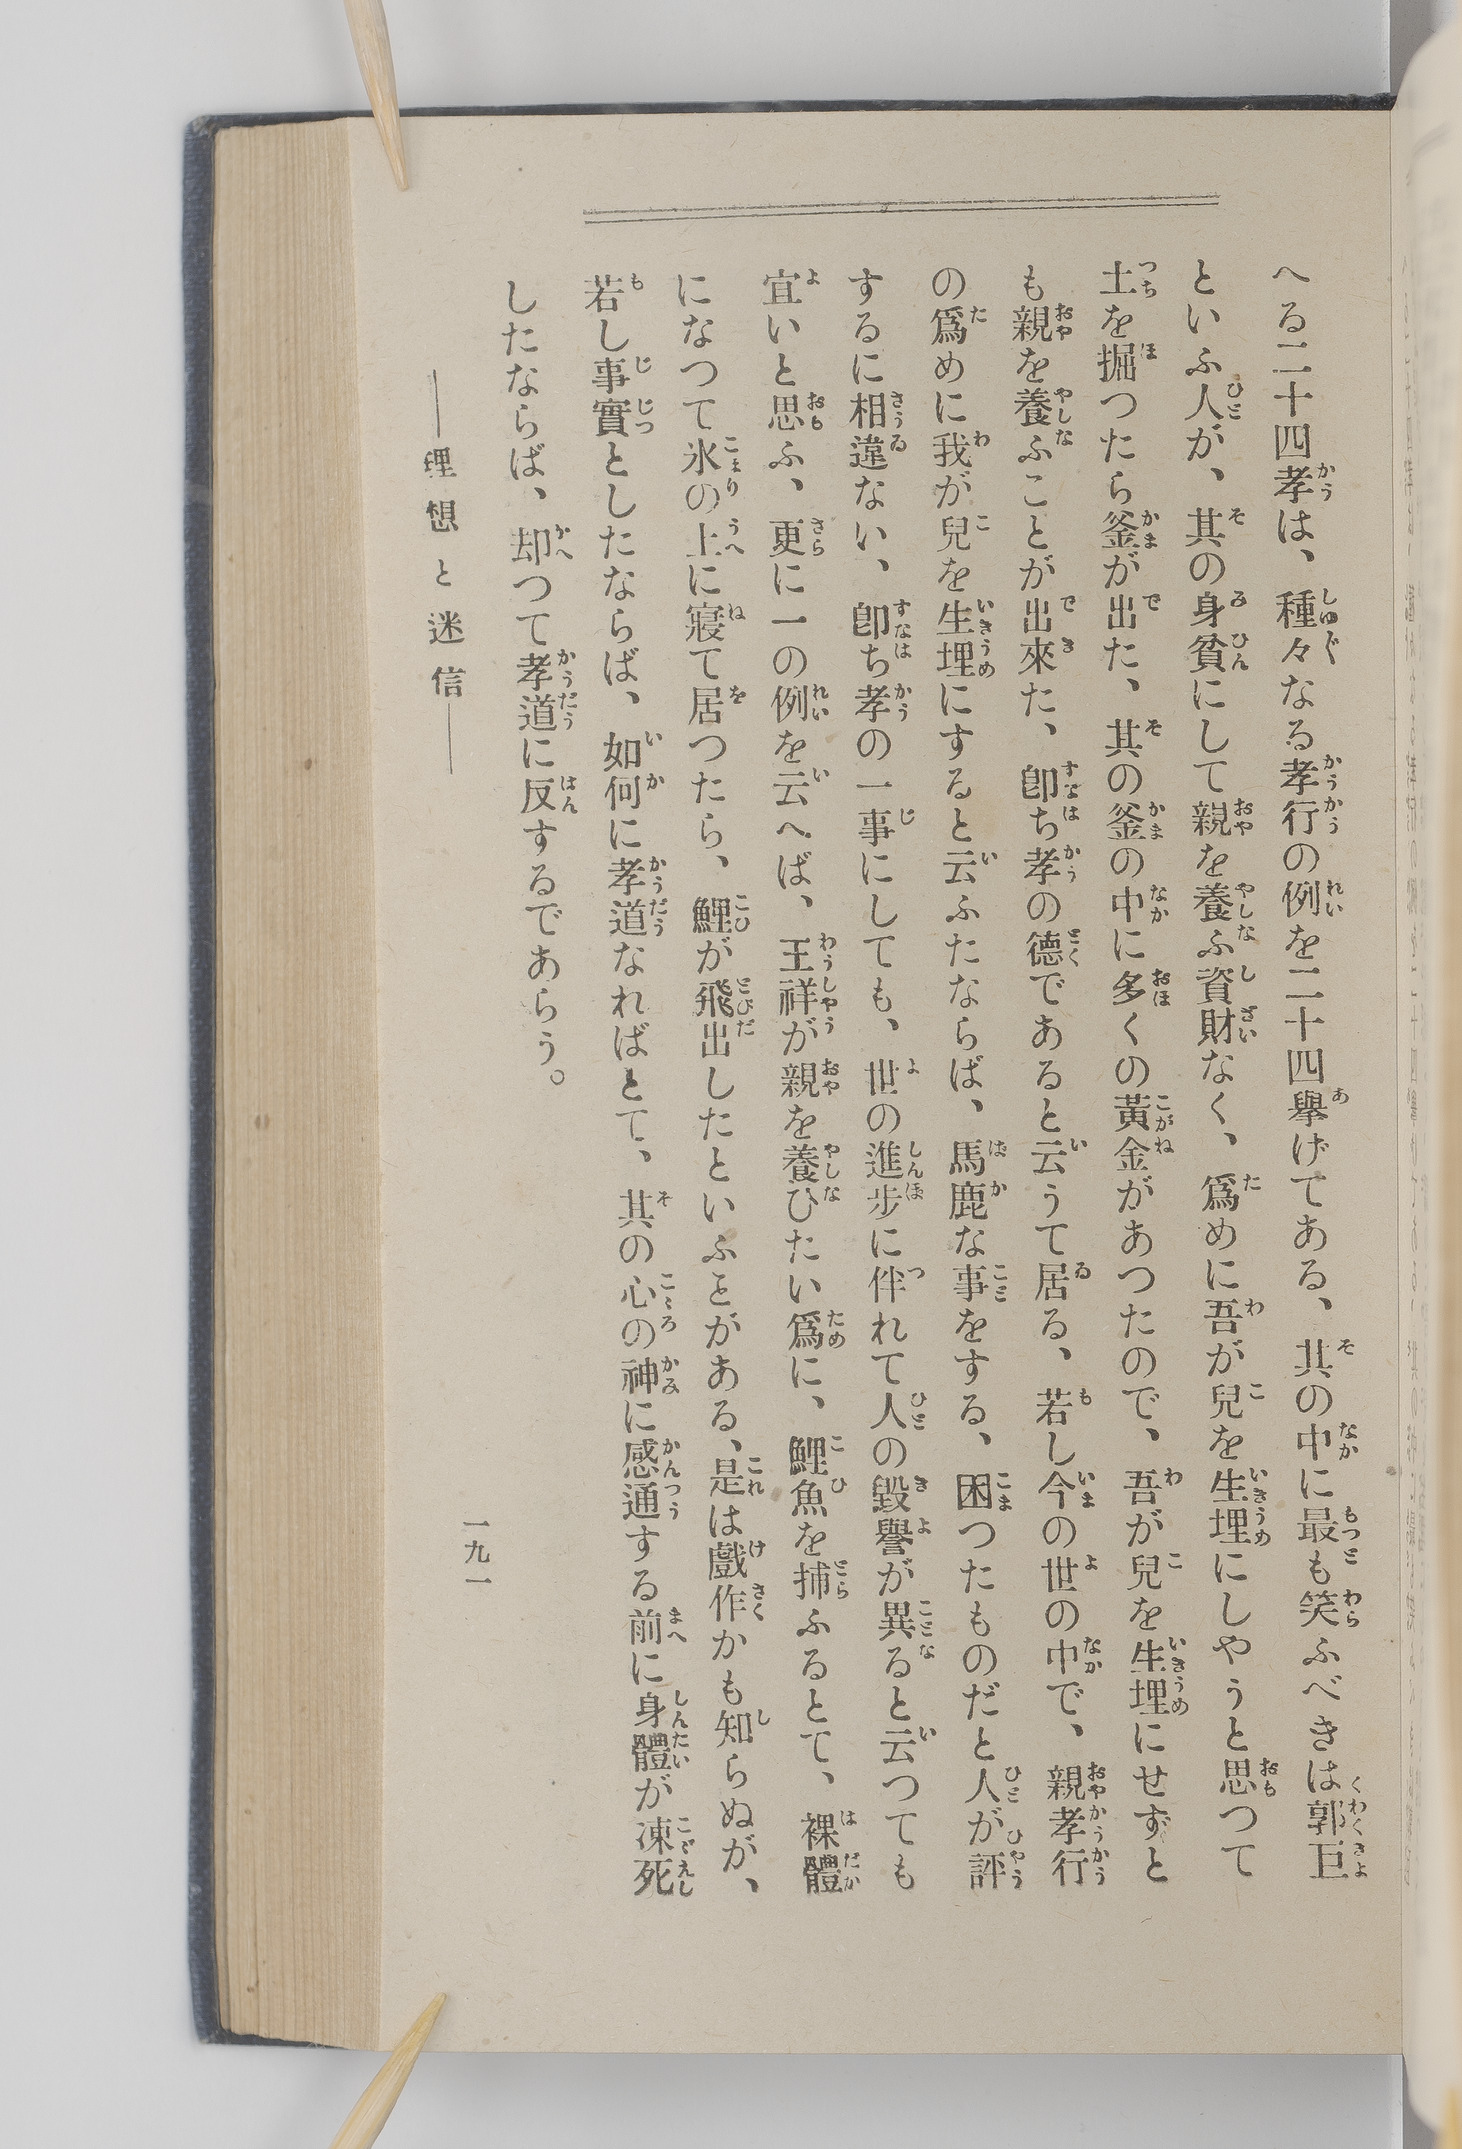 へる二十四孝は、種々なる孝行の例を二十四擧げてある、其の中に最も笑ふべきは郭巨
といふ人が、其の身貧にして親を養ふ資財なく、爲めに吾が兒を生埋にしやうと思つて
土を掘つたら釜が出た、其の釜の中に多くの黃金があつたので、吾が兒を生埋にせずと
も親を養ふことが出來た、卽ち孝の德であると云うて居る、若し今の世の中で、親孝行
の爲めに我が兒を生埋にすると云ふたならば、馬鹿な事をする、困つたものだと人が評
するに相違ない、卽ち孝の一事にしても、世の進步に伴れて人の毀譽が異ると云つても
宜いと思ふ、更に一の例を云へば、王祥が親を養ひたい爲に、鯉魚を捕ふるとて、裸體
になつて氷の上に寢て居つたら、鯉が飛出したといふヿがある、是は戲作かも知らぬが、
若し事實としたならば、如何に孝道なればとて、其の心の神に感通する前に身體が凍死
したならば、却つて孝道に反するであらう。
――理想と迷信――
一九一